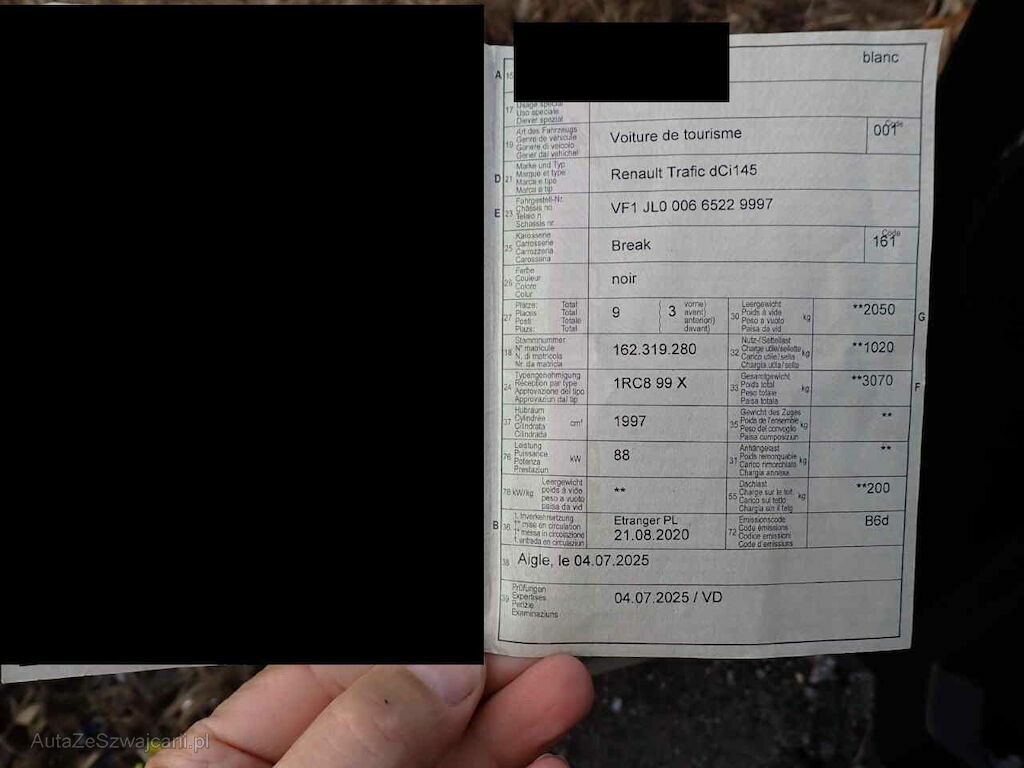 blanc
A 15
17 Usage spécial
Uso speciale
Diever spezial
19 Art des Fahrzeugs
Genre de véhicule
Genere di veicolo
Gener dal vehichel
Voiture de tourisme
Code
001
D 21 Marke und Typ
Marque et type
Marca e tipo
Marca e tip
Renault Trafic dCi145
E 23 Fahrgestell-Nr.
Châssis no
Telaio n
Schassis nr
VF1 JL0 006 6522 9997
25 Karosserie
Carrosserie
Carrozzeria
Carossaria
Break
Code
161
26 Farbe
Couleur
Colore
Colur
noir
27 Plätze: Total
Places Total
Posti: Totale
Plazs: Total
9 ( 3 vorne)
avant)
anteriori)
davant)
30 Leergewicht
Poids à vide
Peso a vuoto
Paisa da vid
kg
**2050
G
18 Stammnummer
N° matricule
N. di matricola
Nr. da matricla
162.319.280
32 Nutz-/Sattellast
Charge utile/sellette
Carico utile/sella
Chargia utila/sella
kg
**1020
24 Typengenehmigung
Réception par type
Approvazione del tipo
Approvaziun dal tip
1RC8 99 X
33 Gesamtgewicht
Poids total
Peso totale
Paisa totala
kg
**3070
F
37 Hubraum
Cylindrée
Cilindrata
Cilindrada
cm³
1997
35 Gewicht des Zuges
Poids de l'ensemble
Peso del convoglio
Paisa cumposiziun
kg
**
76 Leistung
Puissance
Potenza
Prestaziun
kW
88
31 Anhängelast
Poids remorquable
Carico rimorchiato
Chargia annexa
kg
**
78 kW/kg
Leergewicht
poids à vide
peso a vuoto
paisa da vid
**
55 Dachlast
Charge sur le toit
Carico sul tetto
Chargia sin il tetg
kg
**200
B 36 1. Inverkehrsetzung
1re mise en circulation
1a messa in circolazione
1. entrada en circulaziun
Etranger PL
21.08.2020
72 Emissionscode
Code émissions
Codice emissioni
Code d'emissiuns
B6d
38 Aigle, le 04.07.2025
39 Prüfungen
Expertises
Perizie
Examinaziuns
04.07.2025 / VD
AutaZeSzwajcarii.pl